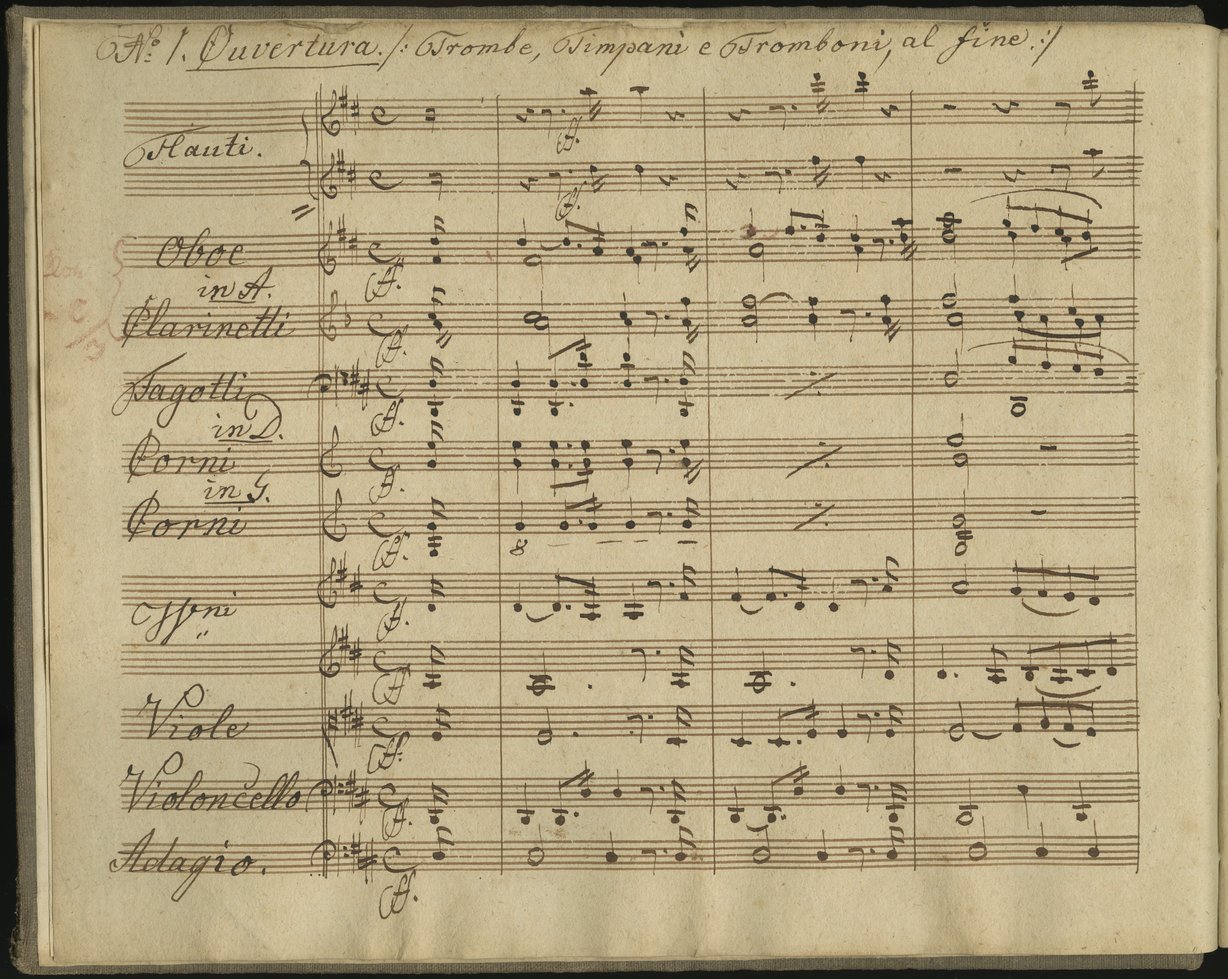 No. 1. Ouvertura. /: Trombe, Timpani e Tromboni, al fine. :/
Flauti.
ff.
ff.
Oboe
ff.
in A.
Clarinetti
ff.
Fagotti
ff.
in D.
Corni
ff.
in G.
Corni
ff.
8
ff.
ff.
Viole
ff.
Violoncello
ff.
Adagio.
ff.